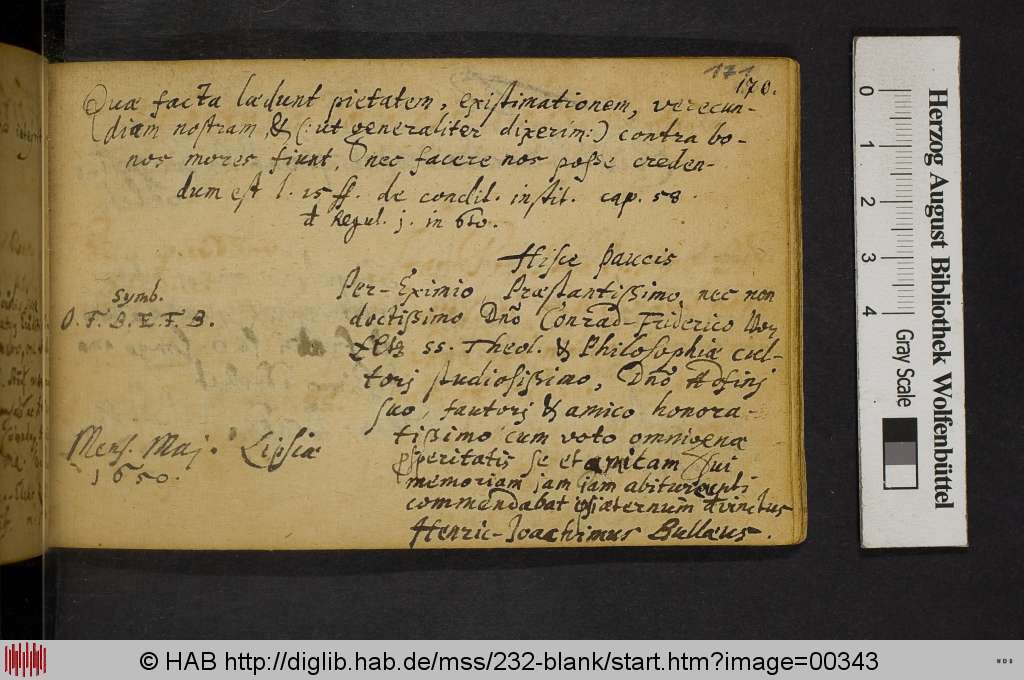 171
170.
Quæ facta lædunt pietatem, existimationem, verecun-
diam nostram, & (: ut generaliter dixerim:) contra bo-
nos mores fiunt, nec facere nos posse creden-
dum est l. 15 ff. de condit. instit. cap. 58.
Regul. j. in 6to.
Hisce paucis
Per-Eximio, Præstantißimo, nec non
doctißimo Dno Conrad-Friderico
ss. Theol. & Philosophiæ cul-
torj studiosißimo, Dno Adfinj
suo, fautorj & amico honora-
tißimo cum voto omnigenæ
prosperitatis se et amicam sui
memoriam jam jam abiturienti
commendabat
Henric-Joachimus Bullæus.
Symb.
O. F. B. E. F. B.
Mens. Maj. Lipsiæ
1650.
0
1
2
3
4
Gray Scale
Herzog August Bibliothek Wolfenbüttel
© HAB http://diglib.hab.de/mss/232-blank/start.htm?image=00343